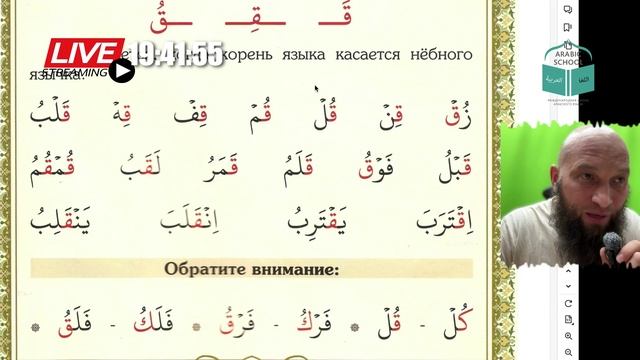 قَـ ـقِـ ـقُ
LIVE 19:41:55
STREAMING
корень языка касается нёбного
язычка.
ARABIC
SCHOOL
اللغة العربية
زُقْ قِنْ قُلْ قُمْ قِفْ قِهْ قَلْبُ
قَبْلُ فَوْقُ قَلَمُ قَمَرُ لَقَبُ قُمْقُمُ
اِقْتَرَبَ يَقْتَرِبُ اِنْقَلَبَ يَنْقَلِبُ
Обратите внимание:
كُلْ - قُلْ * فَرْكُ - فَرْقُ * فَلَكُ - فَلَقُ *